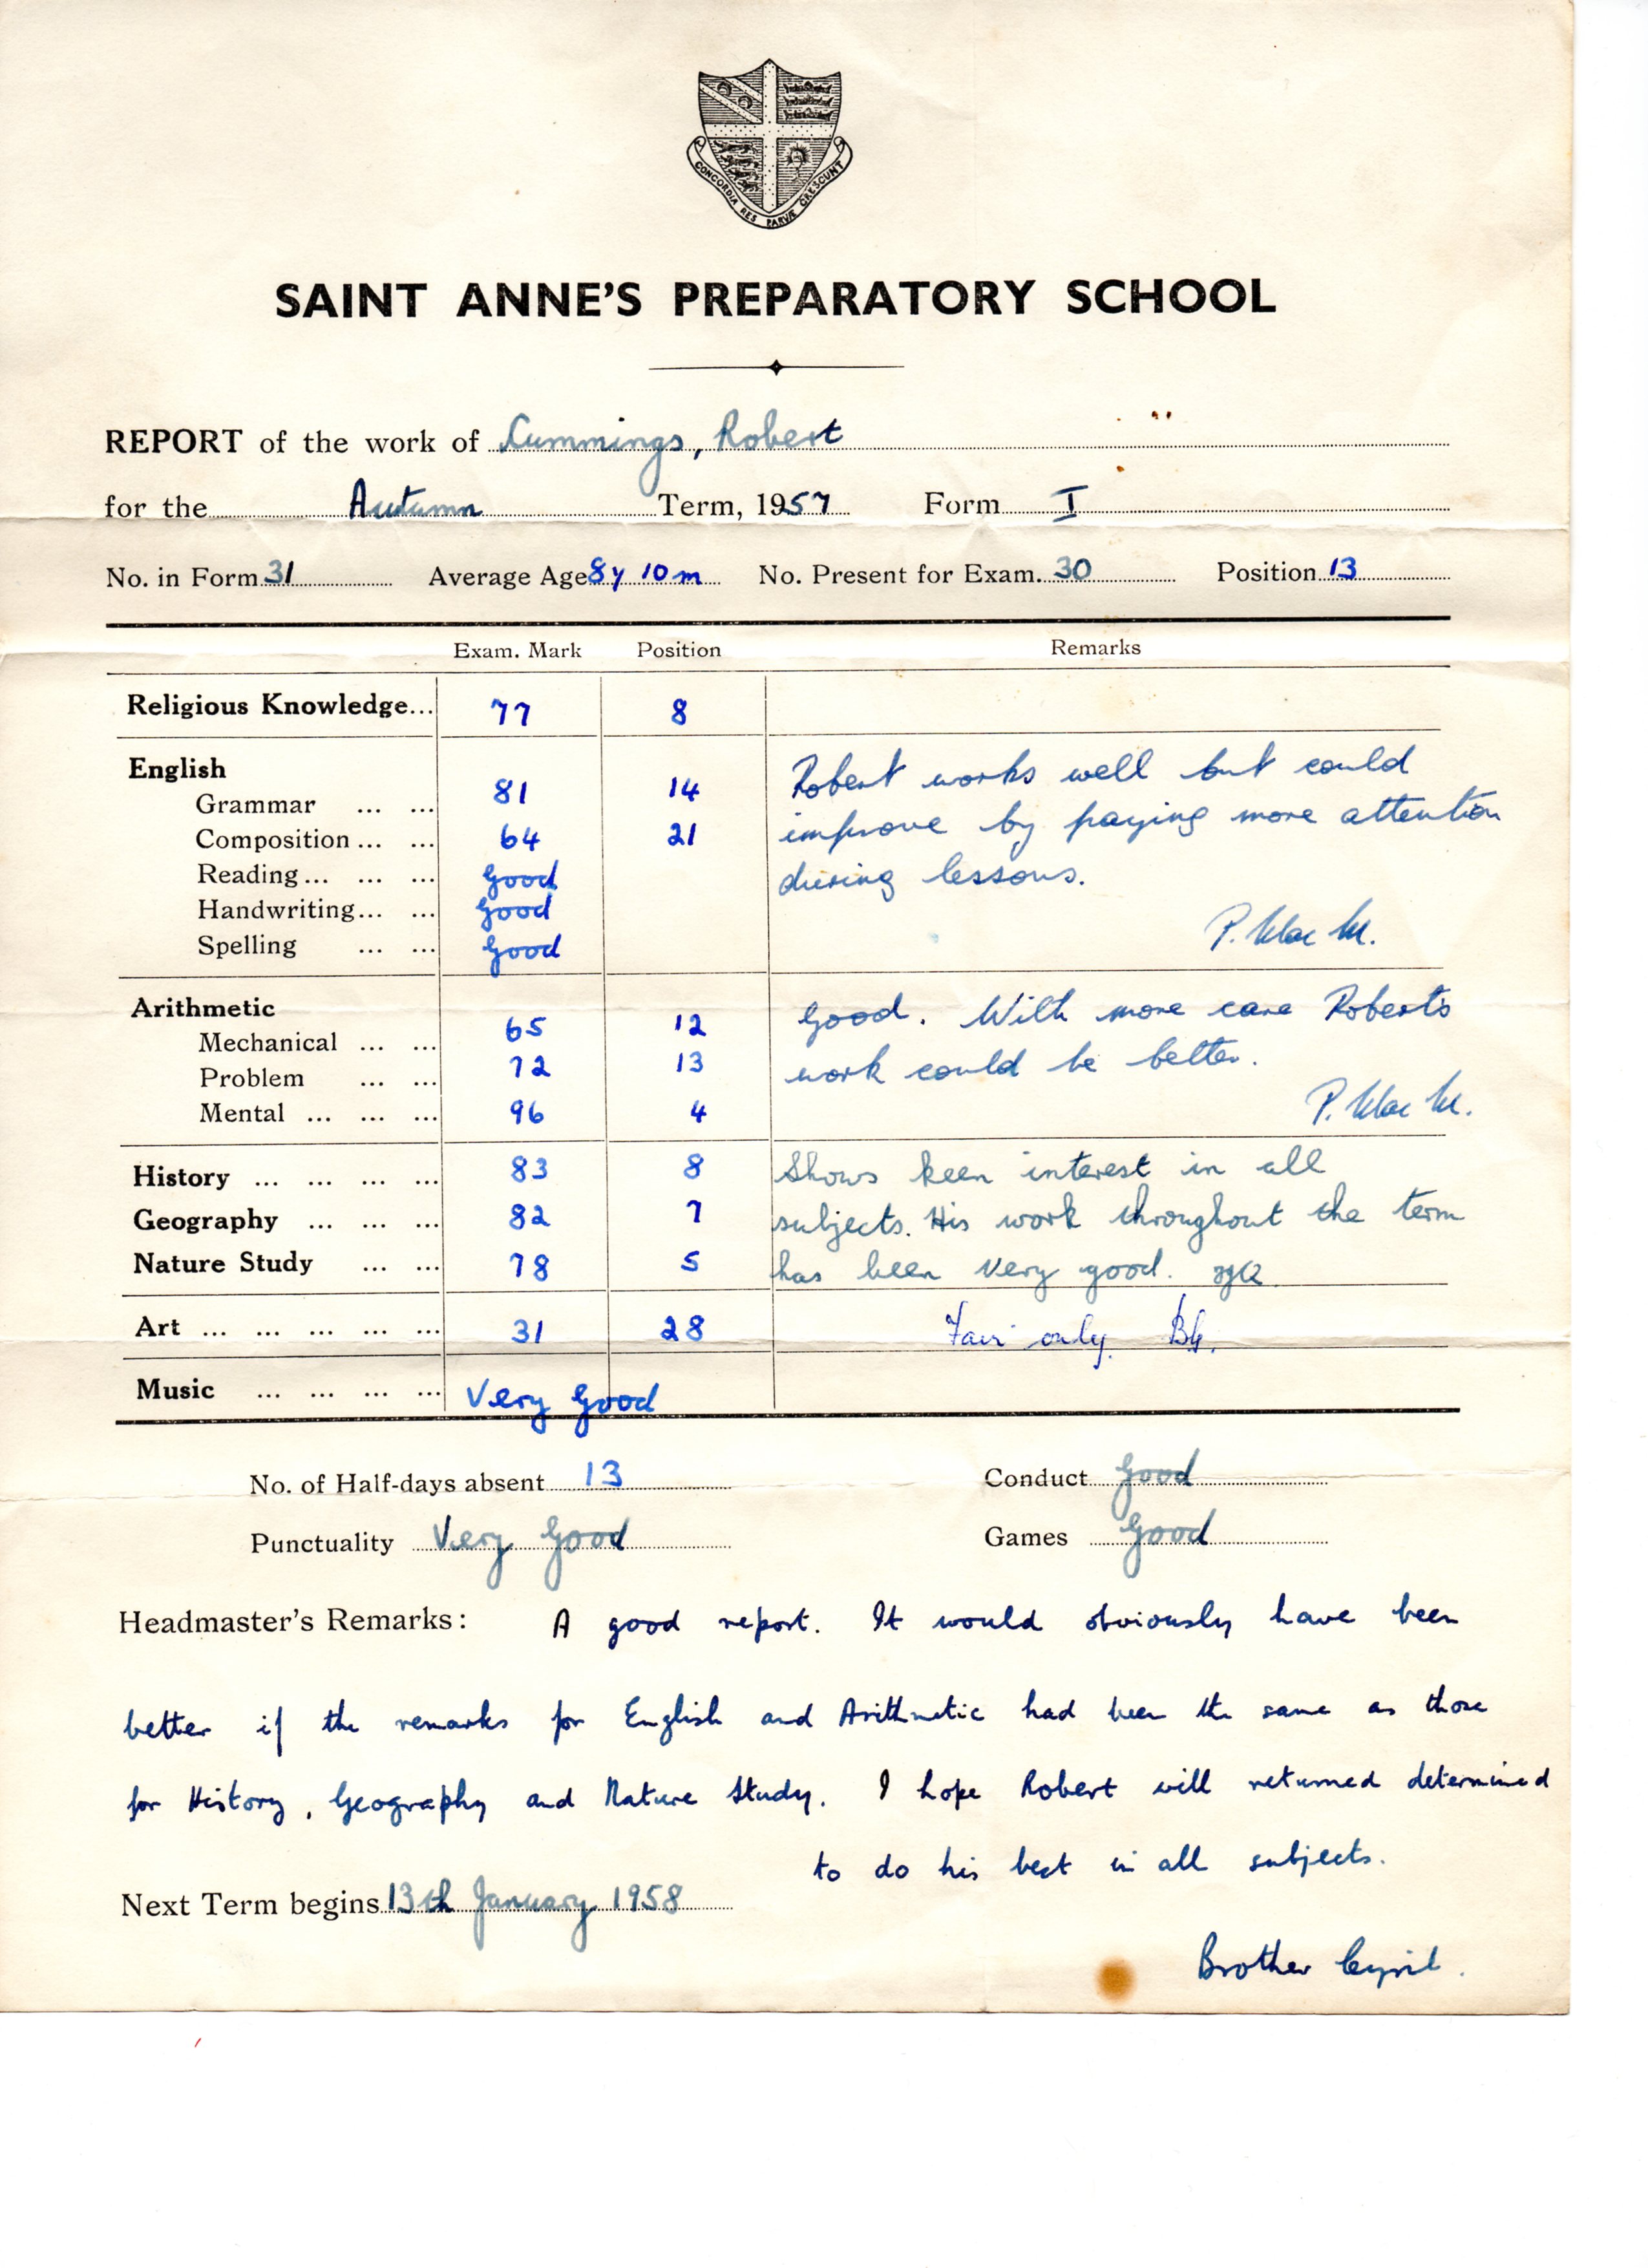 CONCORDIA RES PARVÆ CRESCUNT
SAINT ANNE'S PREPARATORY SCHOOL
REPORT of the work of Cummings, Robert
for the Autumn Term, 1957 Form I
No. in Form 31 Average Age 8y 10m No. Present for Exam. 30 Position 13
Exam. Mark Position Remarks
Religious Knowledge... 77 8
English
Grammar ... ... 81 14 Robert works well but could
Composition ... ... 64 21 improve by paying more attention
Reading ... ... ... Good during lessons.
Handwriting... ... Good P. Mac M.
Spelling ... ... Good
Arithmetic
Mechanical ... ... 65 12 Good. With more care Robert's
Problem ... ... 72 13 work could be better.
Mental ... ... ... 96 4 P. Mac M.
History ... ... ... ... 83 8 Shows keen interest in all
Geography ... ... ... 82 7 subjects. His work throughout the term
Nature Study ... ... 78 5 has been very good.
Art ... ... ... ... ... 31 28 Fair only.
Music ... ... ... ... Very Good
No. of Half-days absent 13 Conduct Good
Punctuality Very Good Games Good
Headmaster's Remarks: A good report. It would obviously have been
better if the remarks for English and Arithmetic had been the same as those
for History, Geography and Nature Study. I hope Robert will returned determined
to do his best in all subjects.
Next Term begins 13th January 1958
Brother Cyril.